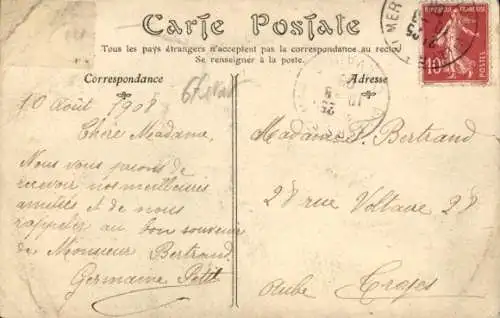 Carte Postale
Tous les pays étrangers n'acceptent pas la correspondance au recto
Se renseigner à la poste.
Correspondance
Adresse
10 Août 1908
Chère Madame,
Nous vous prions de
recevoir nos meilleures
amitiés et de nous
rappeler au bon souvenir
de Monsieur Bertrand.
Germaine Petit
Madame F. Bertrand
28 rue Voltaire 28
Aube Troyes
MER
10
POSTES